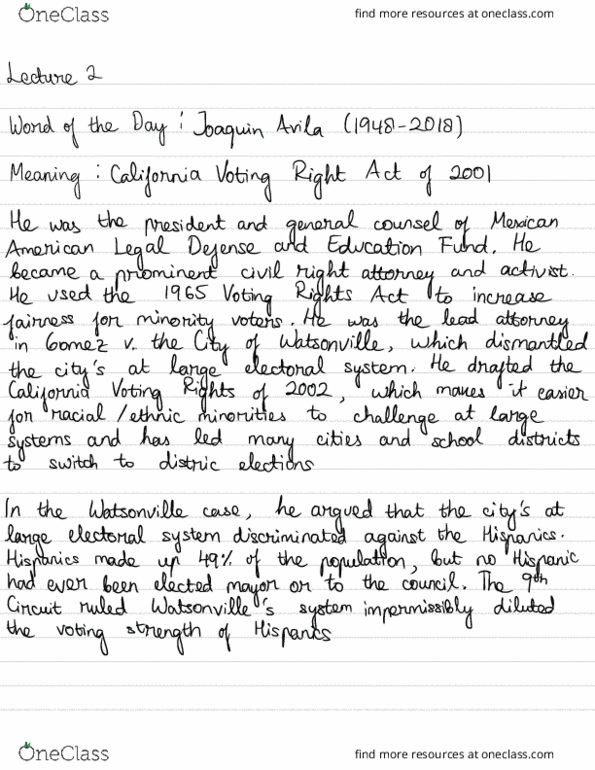 OneClass
find more resources at oneclass.com
Lecture 2
Word of the Day : Joaquin Avila (1948-2018)
Meaning : California Voting Right Act of 2001
He was the president and general counsel of Mexican
American Legal Defense and Education Fund. He
became a prominent civil right attorney and activist.
He used the 1965 Voting Rights Act to increase
fairness for minority voters. He was the lead attorney
in Gomez v. the City of Watsonville, which dismantled
the city's at large electoral system. He drafted the
California Voting Rights of 2002, which makes it easier
for racial/ethnic minorities to challenge at large
systems and has led many cities and school districts
to switch to distric elections
In the Watsonville case, he argued that the city's at
large electoral system discriminated against the Hispanics.
Hispanics made up 49% of the population, but no Hispanic
had ever been elected mayor or to the council. The 9th
Circuit ruled Watsonville's system impermissibly diluted
the voting strength of Hispanics
OneClass
find more resources at oneclass.com